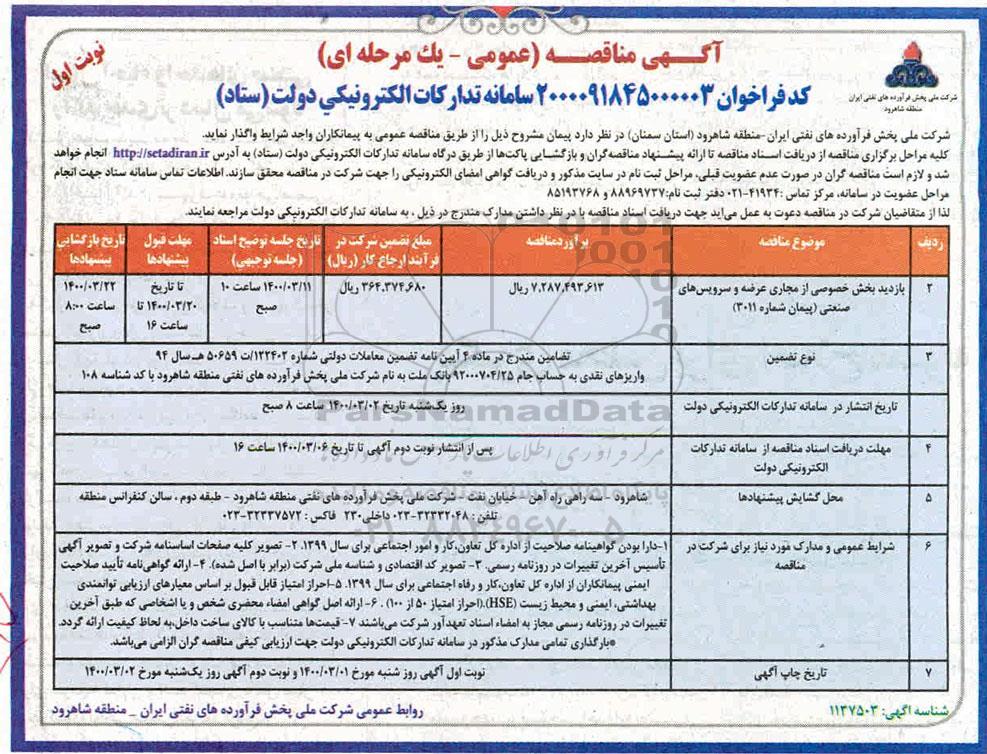 نوبت اول
آگهی مناقصه (عمومی - یک مرحله ای)
کد فراخوان ۲۰۰۰۰۹۱۸۴۵۰۰۰۰۰۳ سامانه تدارکات الکترونیکی دولت (ستاد)
شرکت ملی پخش فرآورده های نفتی ایران
منطقه شاهرود
شرکت ملی پخش فرآورده های نفتی ایران -منطقه شاهرود (استان سمنان) در نظر دارد پیمان مشروح ذیل را از طریق مناقصه عمومی به پیمانکاران واجد شرایط واگذار نماید.
کلیه مراحل برگزاری مناقصه از دریافت اسناد مناقصه تا ارائه پیشنهاد مناقصه‌گران و بازگشایی پاکت‌ها از طریق درگاه سامانه تدارکات الکترونیکی دولت (ستاد) به آدرس http://setadiran.ir انجام خواهد
شد و لازم است مناقصه گران در صورت عدم عضویت قبلی، مراحل ثبت نام در سایت مذکور و دریافت گواهی امضای الکترونیکی را جهت شرکت در مناقصه محقق سازند. اطلاعات تماس سامانه ستاد جهت انجام
مراحل عضویت در سامانه، مرکز تماس :۴۱۹۳۴-۰۲۱ دفتر ثبت نام:۸۸۹۶۹۷۳۷ و ۸۵۱۹۳۷۶۸
لذا از متقاضیان شرکت در مناقصه دعوت به عمل می‌آید جهت دریافت اسناد مناقصه با در نظر داشتن مدارک مندرج در ذیل ، به سامانه تدارکات الکترونیکی دولت مراجعه نمایند.
ردیف موضوع مناقصه برآوردمناقصه مبلغ تضمین شرکت در تاریخ جلسه توضیح اسناد مهلت قبول تاریخ بازگشایی
فرآیند ارجاع کار (ریال) (جلسه توجیهی) پیشنهادها پیشنهادها
۲ بازدید بخش خصوصی از مجاری عرضه و سرویس‌های ۷,۲۸۷,۴۹۳,۶۱۳ ریال ۳۶۴,۳۷۴,۶۸۰ ریال ۱۴۰۰/۰۳/۱۱ ساعت ۱۰ تا تاریخ ۱۴۰۰/۰۳/۲۲
صنعتی (پیمان شماره ۳۰۱۱) صبح ۱۴۰۰/۰۳/۲۰ تا ساعت ۸:۰۰
ساعت ۱۶ صبح
۳ نوع تضمین تضامین مندرج در ماده ۴ آیین نامه تضمین معاملات دولتی شماره ۱۲۳۴۰۲/ت ۵۰۶۵۹ هـ سال ۹۴
واریزهای نقدی به حساب جام ۹۲۰۰۰۷۰۴/۲۵ بانک ملت به نام شرکت ملی پخش فرآورده های نفتی منطقه شاهرود با کد شناسه ۱۰۸
تاریخ انتشار در سامانه تدارکات الکترونیکی دولت روز یک‌شنبه تاریخ ۱۴۰۰/۰۳/۰۲ ساعت ۸ صبح
۴ مهلت دریافت اسناد مناقصه از سامانه تدارکات پس از انتشار نوبت دوم آگهی تا تاریخ ۱۴۰۰/۰۳/۰۶ ساعت ۱۶
الکترونیکی دولت
۵ محل گشایش پیشنهادها شاهرود - سه راهی راه آهن - خیابان نفت - شرکت ملی پخش فرآورده های نفتی منطقه شاهرود - طبقه دوم ، سالن کنفرانس منطقه
تلفن : ۳۲۳۳۲۰۴۸-۰۲۳ داخلی ۲۳۰ فاکس : ۳۲۳۳۷۵۷۲-۰۲۳
۶ شرایط عمومی و مدارک مورد نیاز برای شرکت در ۱-دارا بودن گواهینامه صلاحیت از اداره کل تعاون،کار و امور اجتماعی برای سال ۱۳۹۹. ۲- تصویر کلیه صفحات اساسنامه شرکت و تصویر آگهی
مناقصه تأسیس آخرین تغییرات در روزنامه رسمی. ۳- تصویر کد اقتصادی و شناسه ملی شرکت (برابر با اصل شده). ۴- ارائه گواهی‌نامه تأیید صلاحیت
ایمنی پیمانکاران از اداره کل تعاون،کار و رفاه اجتماعی برای سال ۱۳۹۹. ۵-احراز امتیاز قابل قبول بر اساس معیارهای ارزیابی توانمندی
بهداشتی، ایمنی و محیط زیست (HSE).(احراز امتیاز ۵۰ از ۱۰۰) . ۶- ارائه اصل گواهی امضاء محضری شخص و یا اشخاصی که طبق آخرین
تغییرات در روزنامه رسمی مجاز به امضاء اسناد تعهدآور شرکت می‌باشند ۷- قیمت‌ها متناسب با کالای ساخت داخل،به لحاظ کیفیت ارائه گردد.
*بارگذاری تمامی مدارک مذکور در سامانه تدارکات الکترونیکی دولت جهت ارزیابی کیفی مناقصه گران الزامی می‌باشد.
۷ تاریخ چاپ آگهی نوبت اول آگهی روز شنبه مورخ ۱۴۰۰/۰۳/۰۱ و نوبت دوم آگهی روز یک‌شنبه مورخ ۱۴۰۰/۰۳/۰۲
شناسه اگهی: ۱۱۳۷۵۰۳
روابط عمومی شرکت ملی پخش فرآورده های نفتی ایران _ منطقه شاهرود
ParsNamadData
۰۲۱-۸۸۳۴۹۶۷۰-۵